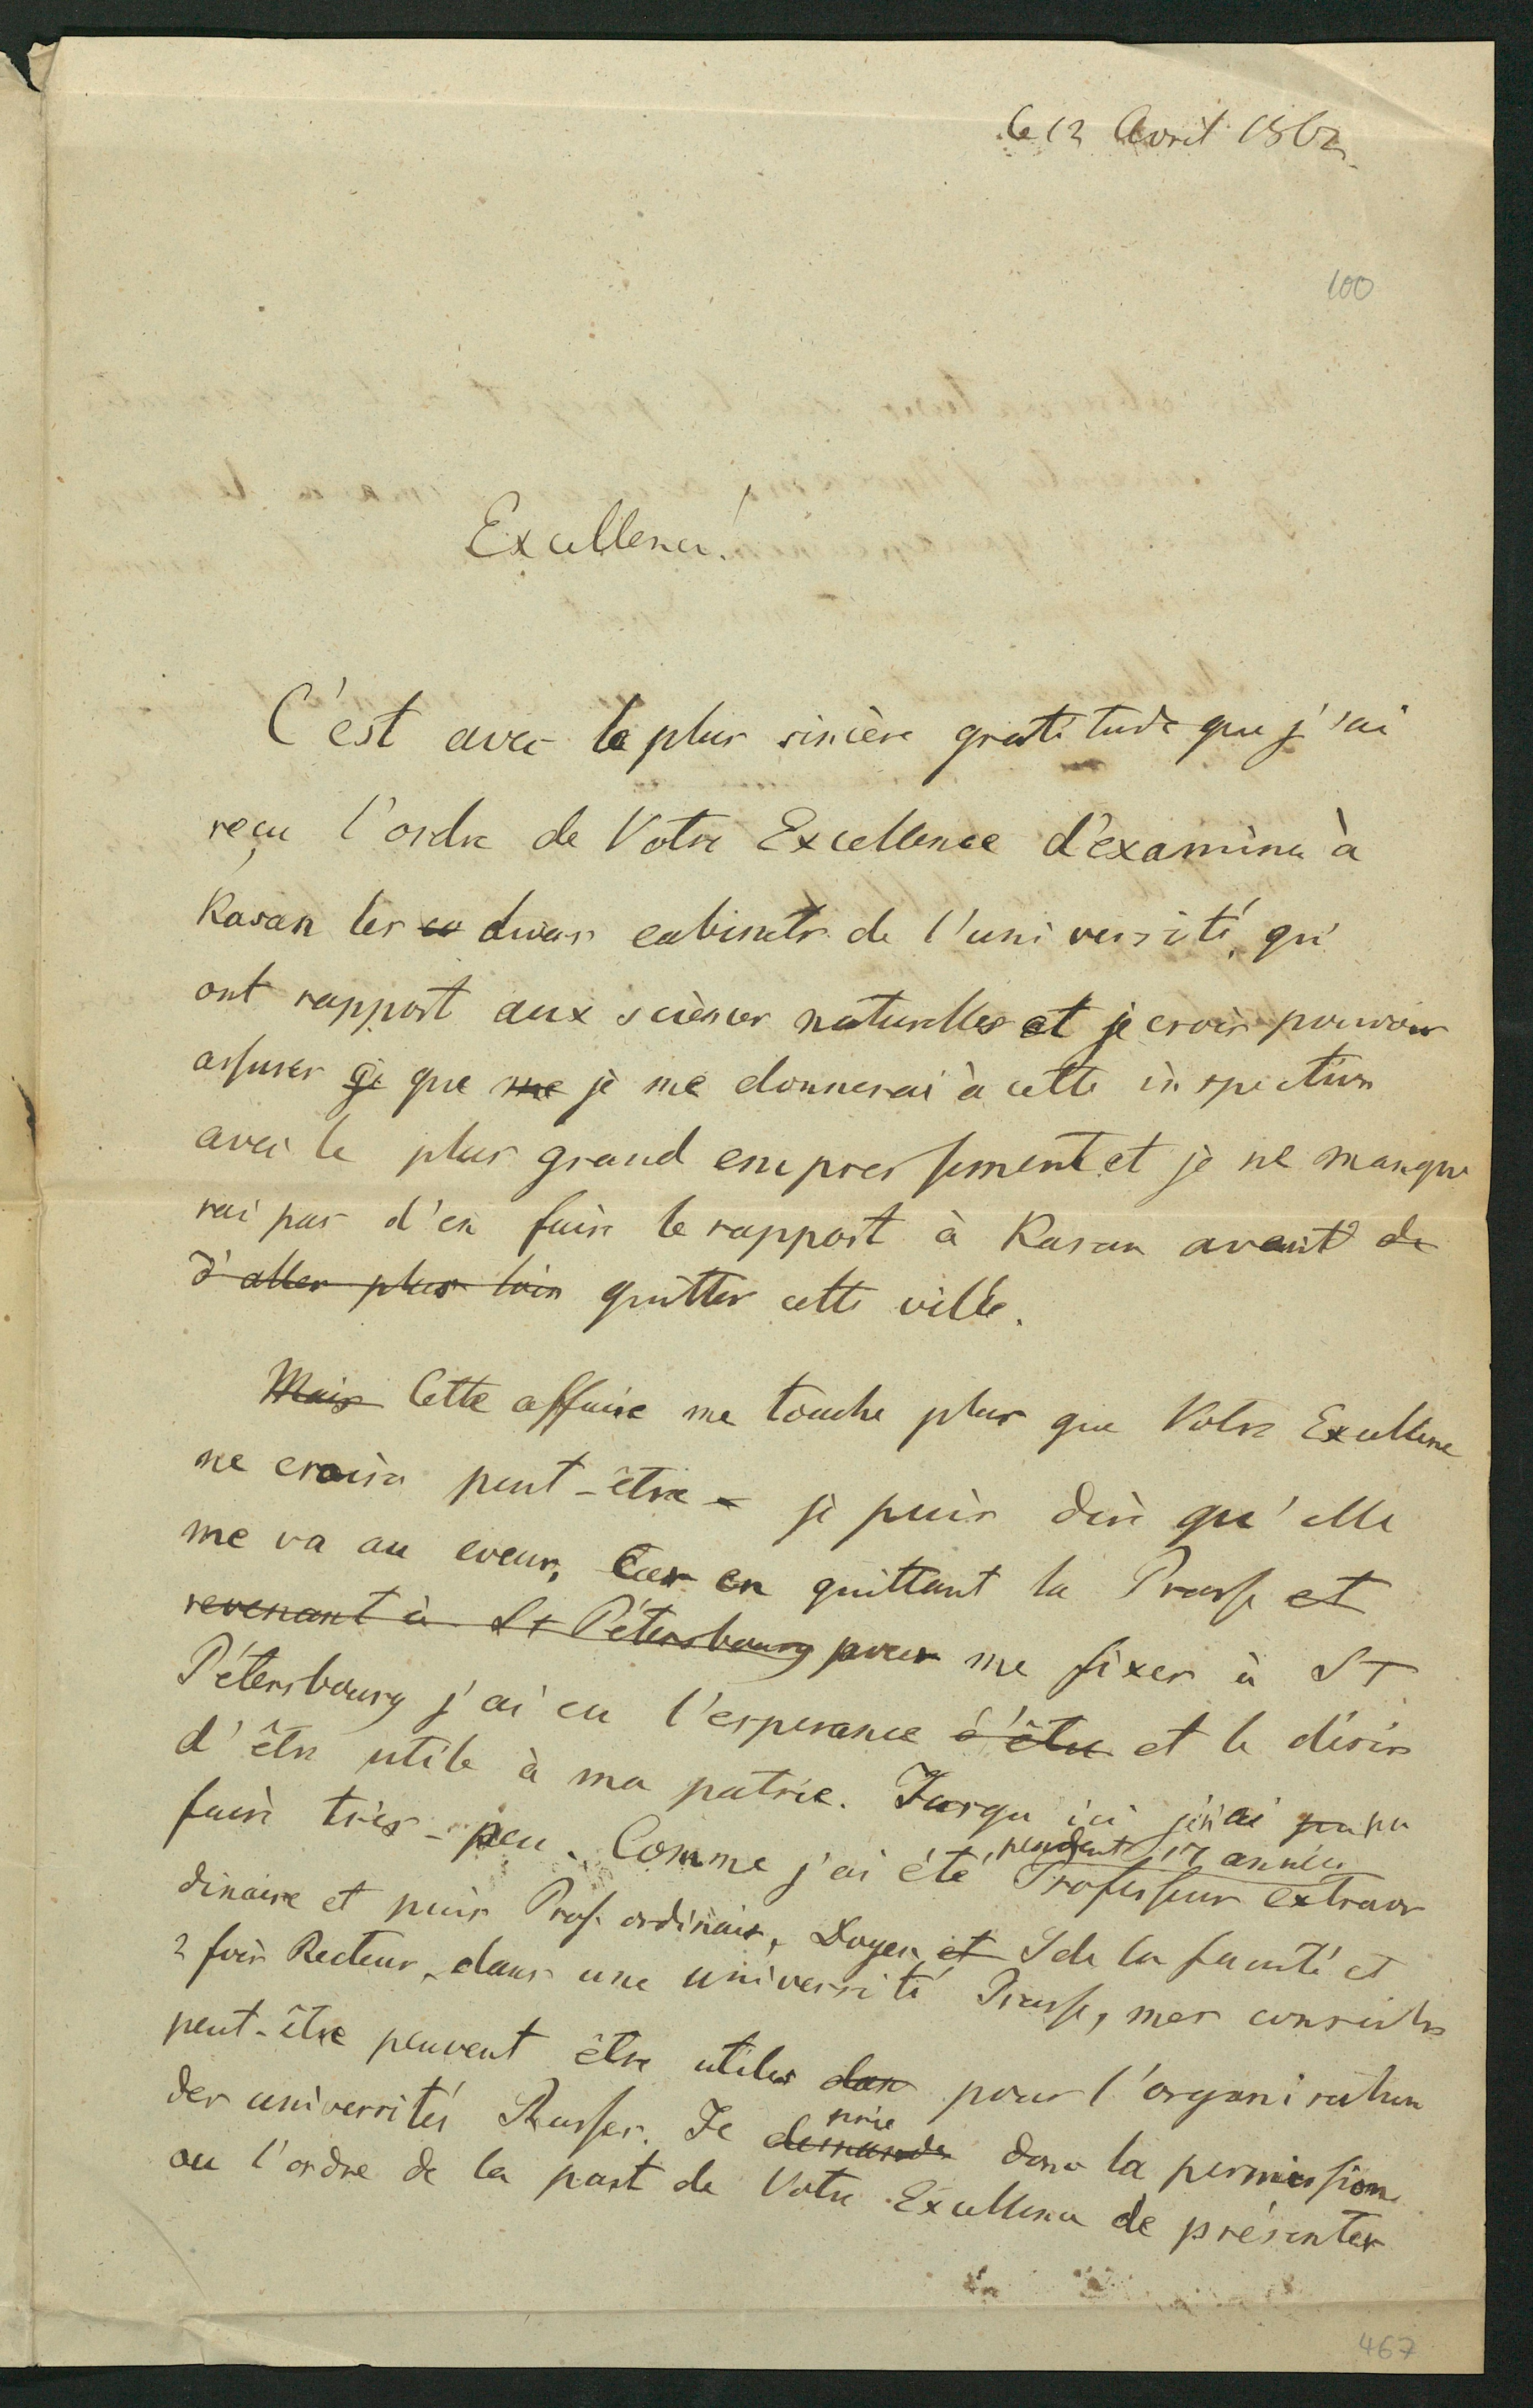 le 12 Avril 1862.
100
Excellence!
C'est avec la plus sincère gratitude que j'ai
reçu l'ordre de Votre Excellence d'examiner à
Kasan les divers cabinets de l'université, qui
ont rapport aux sciences naturelles et je crois pouvoir
assurer que me je me donnerai à cette inspection
avec le plus grand empressement et je ne manque
rai pas d'en faire le rapport à Kasan avant de
d'aller plus loin quitter cette ville.
Mais Cette affaire me touche plus que Votre Excellence
ne croira peut-être – je puis dire qu'elle
me va au coeur, Car en quittant la Prusse et
revenant à St Pétersbourg pour me fixer à St
Pétersbourg j'ai eu l'esperance d'être et le désir
d'être utile à ma patrie. Jusqu'ici j'ai pu
faire très-peu. Comme j'ai été pendant 17 années Professeur extraor
dinaire et puis Prof. ordinaire, Doyen et de la faculté et
2 fois Recteur, dans une université Prusse, mes conseils
peut-être peuvent être utiles dan pour l'organisation
des universités Russes. Je demande prie donc la permission
ou l'ordre de la part de Votre Excellence de présenter
467